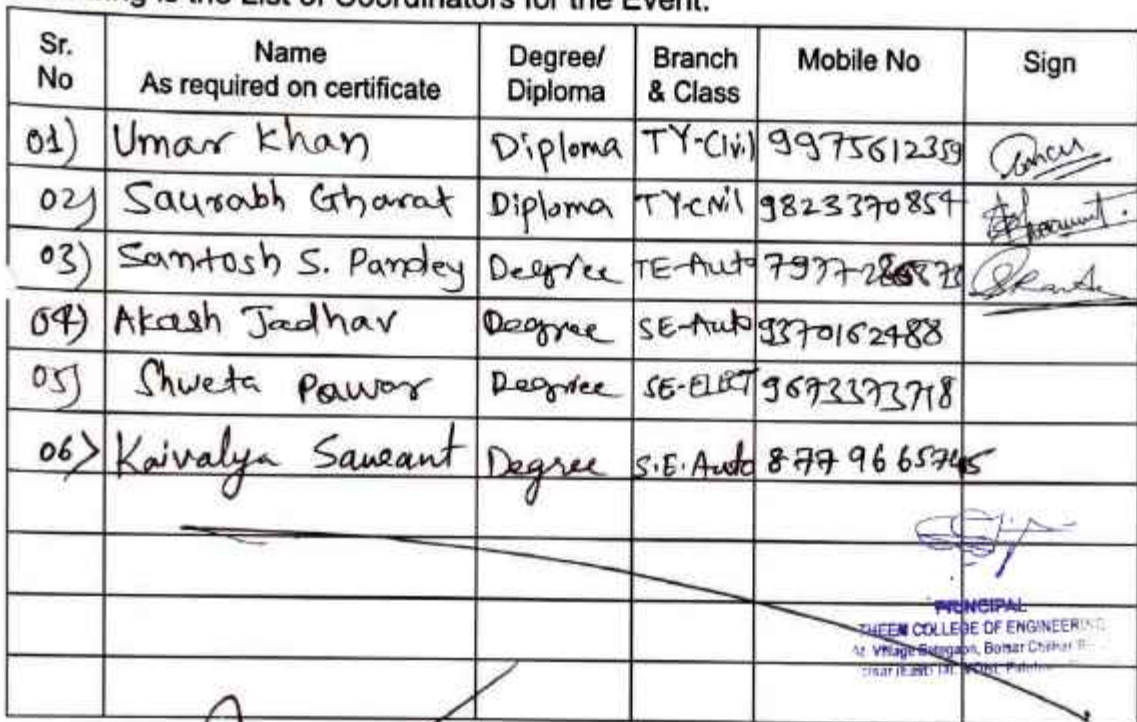 is the List of Coordinators for the Event:
Sr. No Name As required on certificate Degree/ Diploma Branch & Class Mobile No Sign
01) Umar Khan Diploma TY-Civil 9975612359
02) Saurabh Gharat Diploma TY-civil 9823370854
03) Santosh S. Pandey Degree TE-Auto
04) Akash Jadhav Degree SE-Auto 9370162488
05) Shweta Pawar Degree SE-ELECT 9673373718
06) Kaivalya Saweant Degree S.E. Auto 877 96 65745
PRINCIPAL
THEEM COLLEGE OF ENGINEERING
At. Village Betegaon, Boisar Chilhar